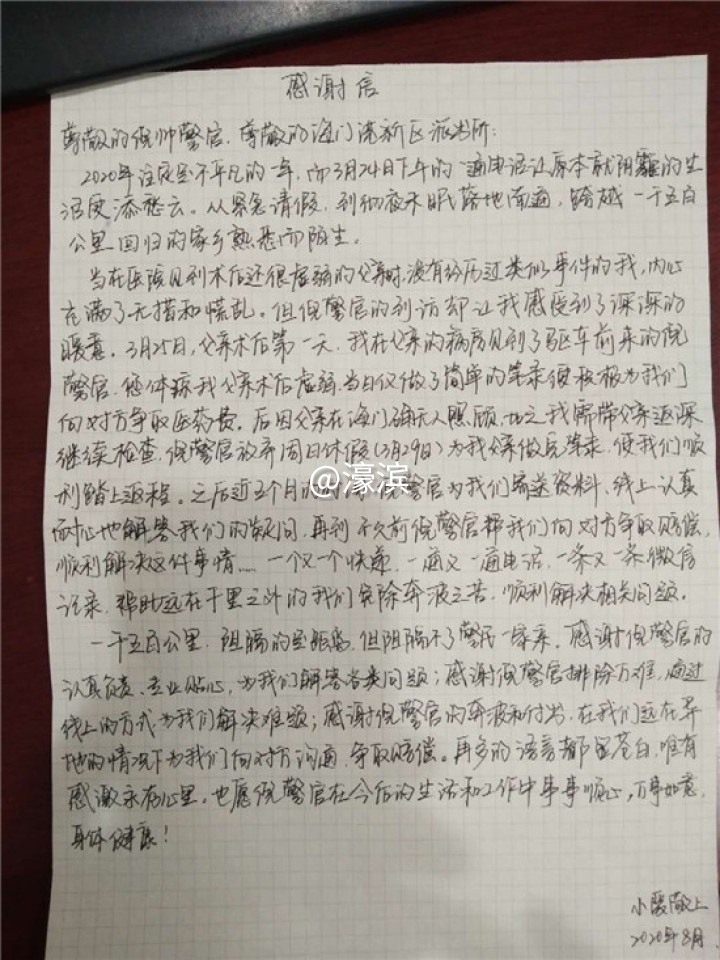 感谢信
尊敬的倪帅警官、尊敬的海门港新区派出所：
2020年注定是不平凡的一年，而3月24日下午的一通电话让原本就阴霾的生
活更添愁云。从紧急请假，到彻夜未眠落地南通，跨越一千五百
公里回归的家乡熟悉而陌生。
当在医院见到术后还很虚弱的父亲时，没有经历过类似事件的我，内心
充满了无措和慌乱。但倪警官的到访却让我感受到了深深的
暖意。3月25日，父亲术后第一天，我在父亲的病房见到了驱车前来的倪
警官，您体谅我父亲术后虚弱，当日仅做了简单的笔录便积极为我们
向对方争取医药费。后因父亲在海门确无人照顾，加之我需带父亲返深
继续检查，倪警官放弃周日休假（3月29日）为我父亲做完笔录，使我们顺
利踏上返程。之后近五个月的警官为我们寄送资料、线上认真
耐心地解答我们的疑问，再到不久前倪警官帮我们向对方争取赔偿，
顺利解决这件事情……一个又一个快递，一通又一通电话，一条又一条微信
记录，帮助远在千里之外的我们免除奔波之苦，顺利解决相关问题。
一千五百公里，阻隔的是距离，但阻隔不了警民一家亲。感谢倪警官的
认真负责、专业贴心，为我们解答各类问题；感谢倪警官排除万难，通过
线上的方式为我们解决难题；感谢倪警官的奔波和付出，在我们远在异
地的情况下为我们向对方沟通、争取赔偿。再多的语言都显苍白，唯有
感激永存心里，也愿倪警官在今后的生活和工作中事事顺心，万事如意，
身体健康！
@濠滨
敬上
2020年8月